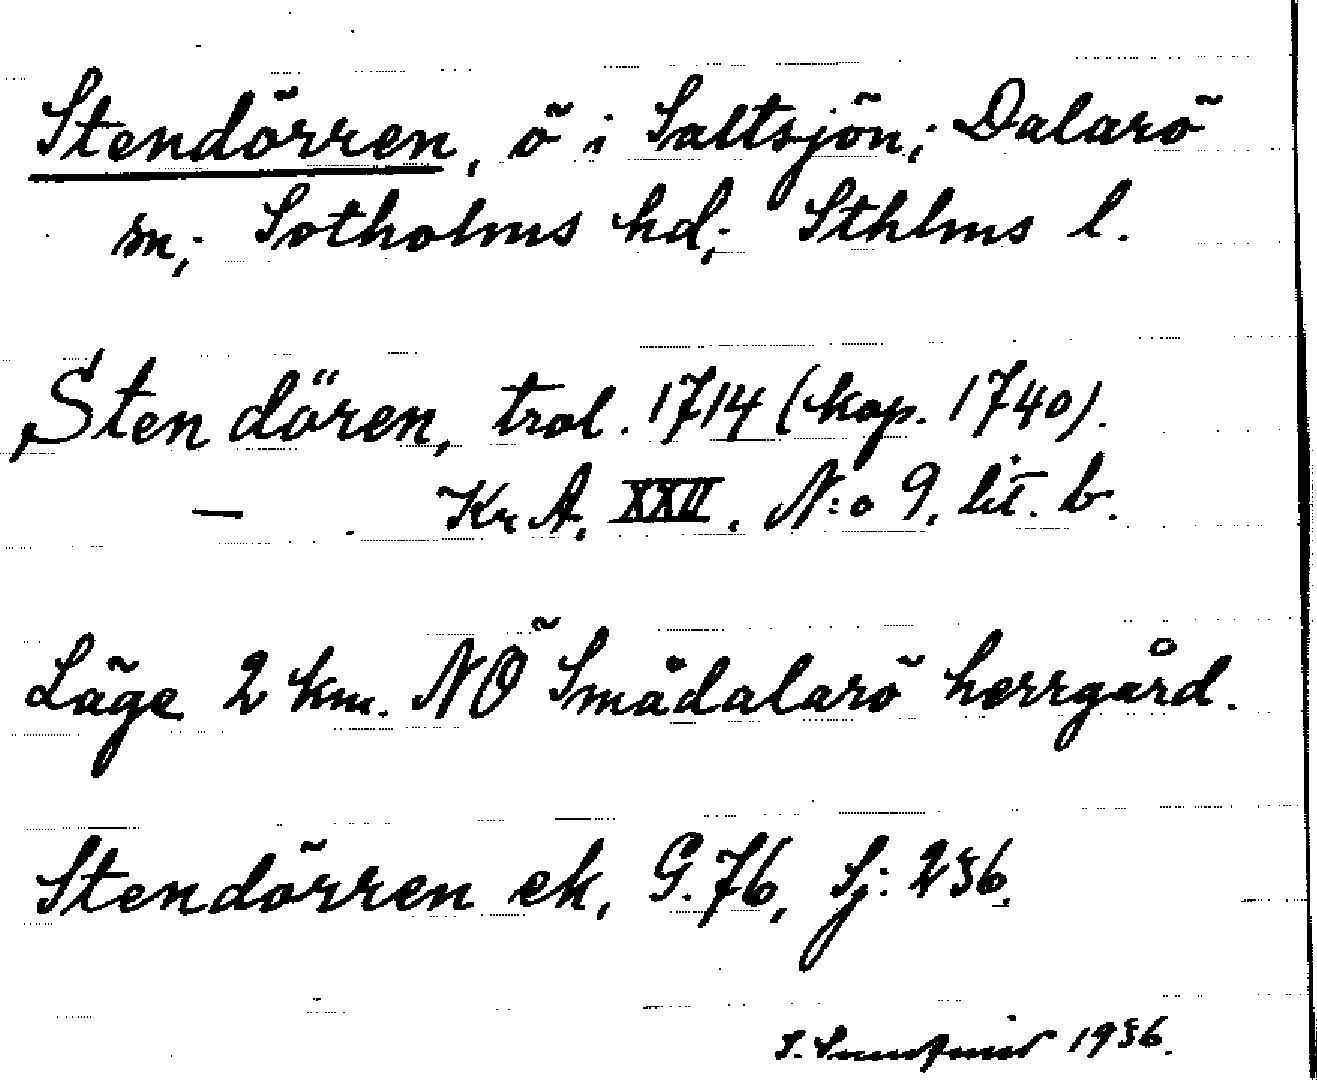 Stendörren, ö i Saltsjön; Dalarö
sn; Sotholms hd; Sthlms l.
Sten dören, trol. 1714 (kop. 1740).
— . Kr A. XXII. N:o 9, lit. b.
Läge 2 km. NÖ Smådalarö herrgård.
Stendörren ek, G. 76, Sj: 236.
S. 1936.